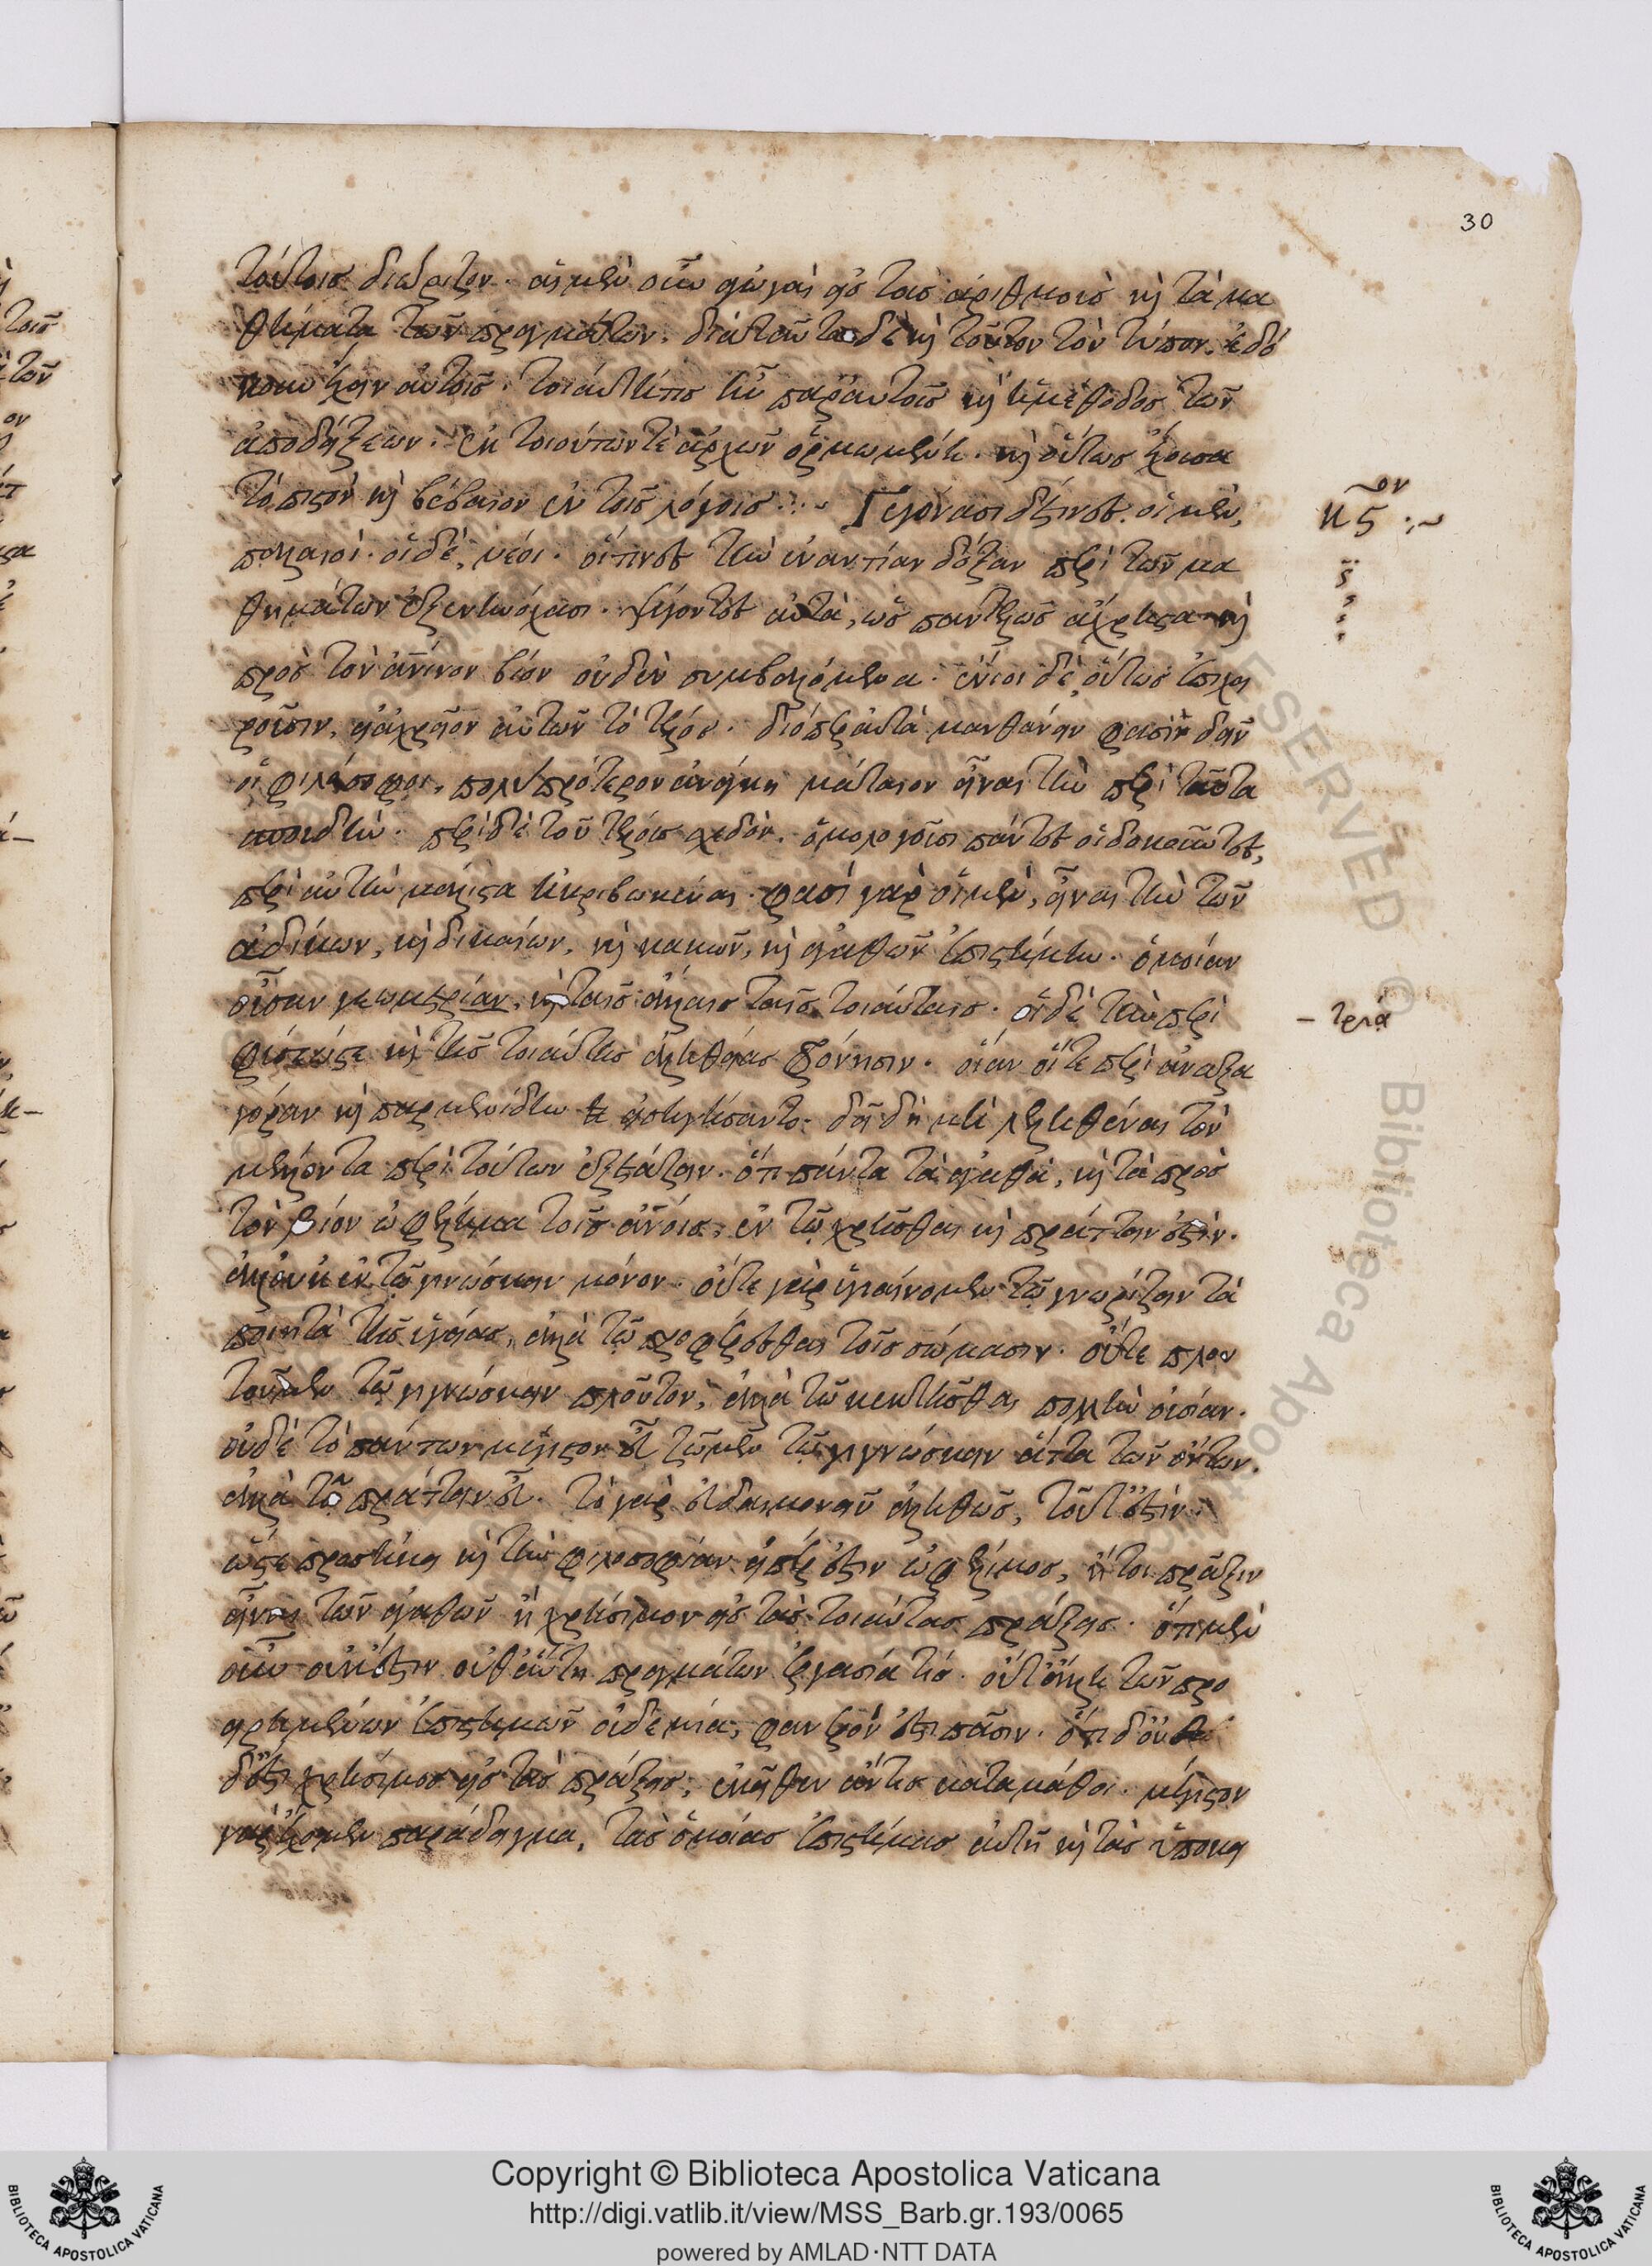 τούτοις διώριζον. αἱ μὲν οὖν ἀγωγαὶ εἰς τοὺς ἀριθμοὺς καὶ τὰ μα
θήματα τῶν πραγμάτων. διὰ ταῦτα δὲ καὶ τοῦτον τὸν τύπον. ἐδό
κουν ἔχειν αὐτοῖς. τοιαύτη τις ἦν παρ' αὐτοῖς καὶ ἡ μέθοδος τῶν
ἀποδείξεων. ἐκ τοιούτων τὲ ἀρχῶν ὁρμωμένη. καὶ οὕτως ἔχουσα
τὸ πιστὸν καὶ βέβαιον ἐν τοῖς λόγοις :~ Γεγόνασι δέ τινες. οἱ μὲν,
παλαιοί. οἱ δὲ, νέοι. οἵτινες τὴν ἐναντίαν δόξαν περὶ τῶν μα
θημάτων ἐξενηνόχασι. ψέγοντες αὐτὰ, ὡς παντελῶς ἄχρηστα καὶ
πρὸς τὸν ἀνίνον βίον οὐδὲν συμβαλόμενα. ἔνιοι δὲ, οὕτως ἐπιχει
ροῦσιν. εἰ ἀχρεῖον αὐτῶν τὸ τέλος. διόπερ αὐτὰ μανθάνειν φασὶν δεῖν
οἱ φιλόσοφοι. πολὺ πρότερον ἀνάγκη μάταιον εἶναι τὴν περὶ ταῦτα
σπουδὴν. περὶ δὲ τοῦ τέλους σχεδὸν. ὁμολογοῦσι πάντες οἱ δοκοῦντες,
περὶ αὐτὴν μάλιστα ἠκριβωκέναι. φασὶ γὰρ οἱ μὲν, εἶναι τὴν τῶν
ἀδίκων, καὶ δικαίων, καὶ κακῶν, καὶ ἀγαθῶν ἐπιστήμην. ὁμοίαν
οὖσαν γεωμετρίαν, καὶ ταῖς ἄλλαις ταῖς τοιαύταις. οἱ δὲ τὴν περὶ
φύσεώς τε καὶ τῆς τοιαύτης ἀληθείας φρόνησιν. οἵαν οἵ τε περὶ ἀναξα
γόραν καὶ παρμενίδην εἰσηγήσαντο. δεῖ δὴ μὴ λεληθέναι τὸν
μέλλοντα περὶ τούτων ἐξετάζειν. ὅτι πάντα τὰ ἀγαθὰ, καὶ τὰ πρὸς
τὸν βίον ὠφέλιμα τοῖς ἀνοις, ἐν τῷ χρῆσθαι καὶ πράττειν ἐστὶν.
ἀλλ' οὐκ ἐν τῷ γινώσκειν μόνον. οὔτε γὰρ ὑγιαίνομεν τῷ γνωρίζειν τὰ
ποιητὰ τῆς ὑγείας, ἀλλὰ τῷ προσφέρεσθαι τοῖς σώμασιν. οὔτε πλου
τοῦμεν τῷ γιγνώσκειν πλοῦτον, ἀλλὰ τῷ κεκτῆσθαι πολλὴν οὐσίαν.
οὐδὲ τὸ πάντων μέγιστον εὖ ζῶμεν τῷ γιγνώσκειν ἄττα τῶν ὄντων.
ἀλλὰ τῷ πράττειν εὖ. τὸ γὰρ εὐδαιμονεῖν ἀληθῶς, τοῦτ' ἐστὶν.
ὥστε προσήκει καὶ τὴν φιλοσοφίαν εἴπερ ἐστὶν ὠφέλιμος, ἤτοι πρᾶξιν
εἶναι τῶν ἀγαθῶν ἢ χρήσιμον εἰς τὰς τοιαύτας πράξεις. ὅτι μὲν
οὖν οὐκ ἔστιν οὔθ' αὕτη πραγμάτων ἐργασία τις. οὔτ' ἄλλη τῶν προ
ειρημένων ἐπιστημῶν οὐδεμία, φανερόν ἐστι πᾶσιν. ὅτι δ' οὐ
δ' ἐστὶ χρήσιμος εἰς τὰς πράξεις, ἐκεῖθεν ἄν τις καταμάθοι. μέγιστον
γὰρ ἔχομεν παράδειγμα, τὰς ὁμοίας ἐπιστήμας αὐτῇ καὶ τὰς ὑποκει
30
κς ον :~
– τρία